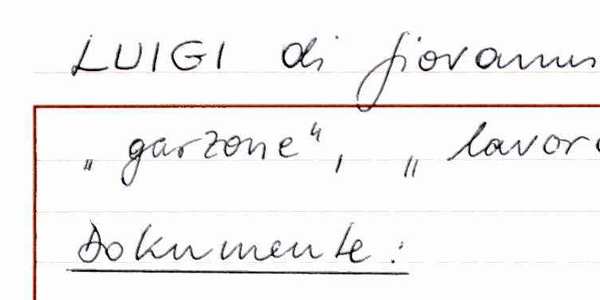 LUIGI di giovanni
„ garzone“, „ lavor
Dokumente: